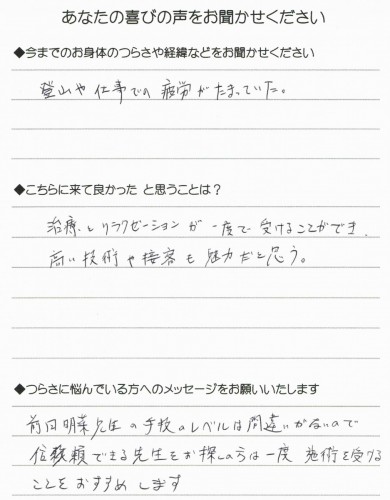 あなたの喜びの声をお聞かせください
◆今までのお身体のつらさや経緯などをお聞かせください
登山や仕事での疲労がたまっていた。
◆こちらに来て良かった と思うことは？
治療とリラクゼーションが一度で受けることができ、
高い技術や接客も魅力だと思う。
◆つらさに悩んでいる方へのメッセージをお願いいたします
前田明菜先生の手技のレベルは間違いがないので
信頼できる先生をお探しの方は一度 施術を受ける
ことをおすすめします